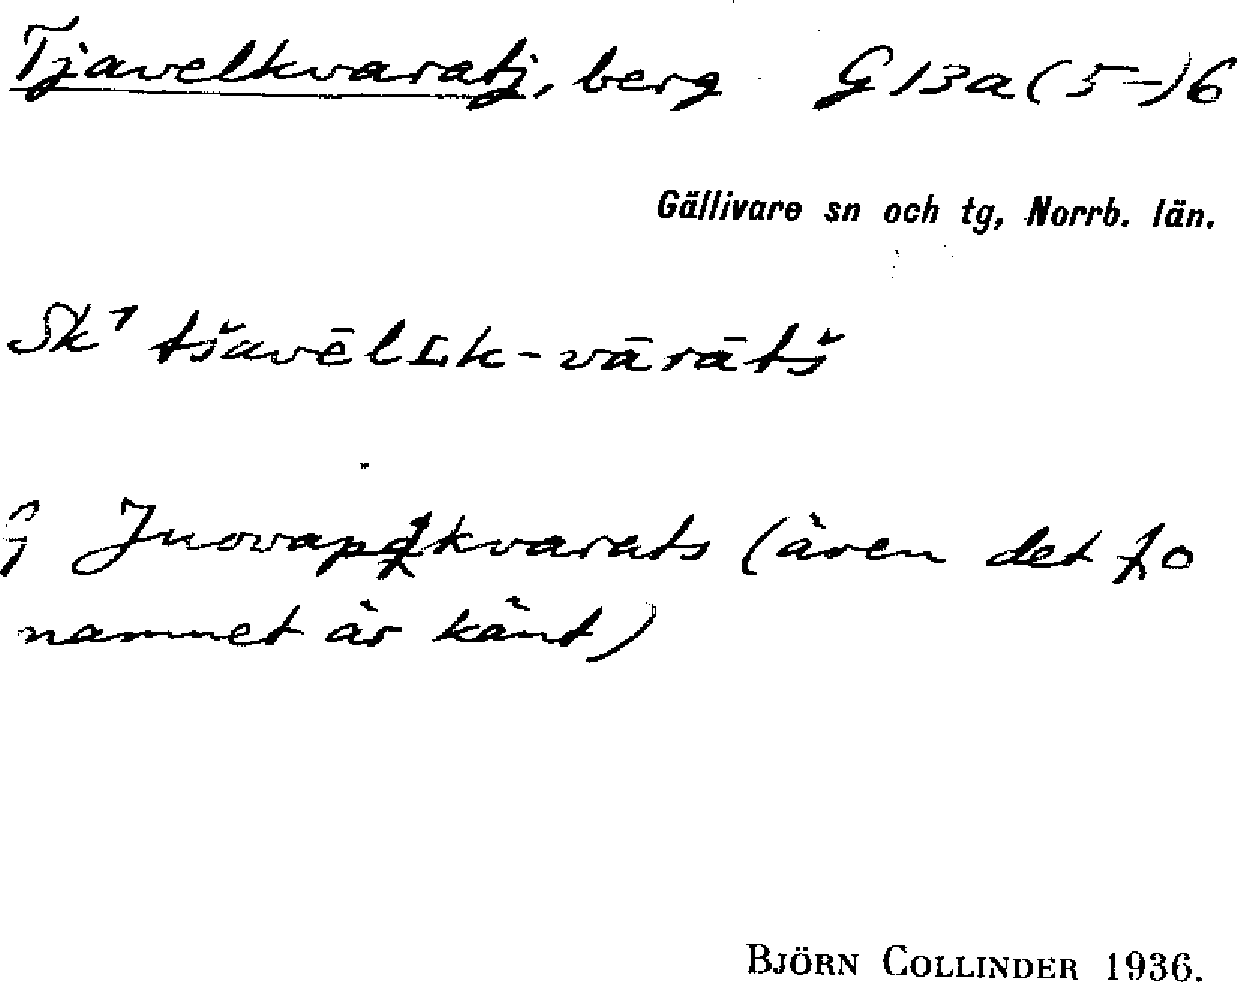 Tjavelkvaratj, berg G 13a (5-)6
Gällivare sn och tg, Norrb. län.
Sk⁷ tšavēlʟk-vārātš
(även det
namnet är känt)
BJÖRN COLLINDER 1936.